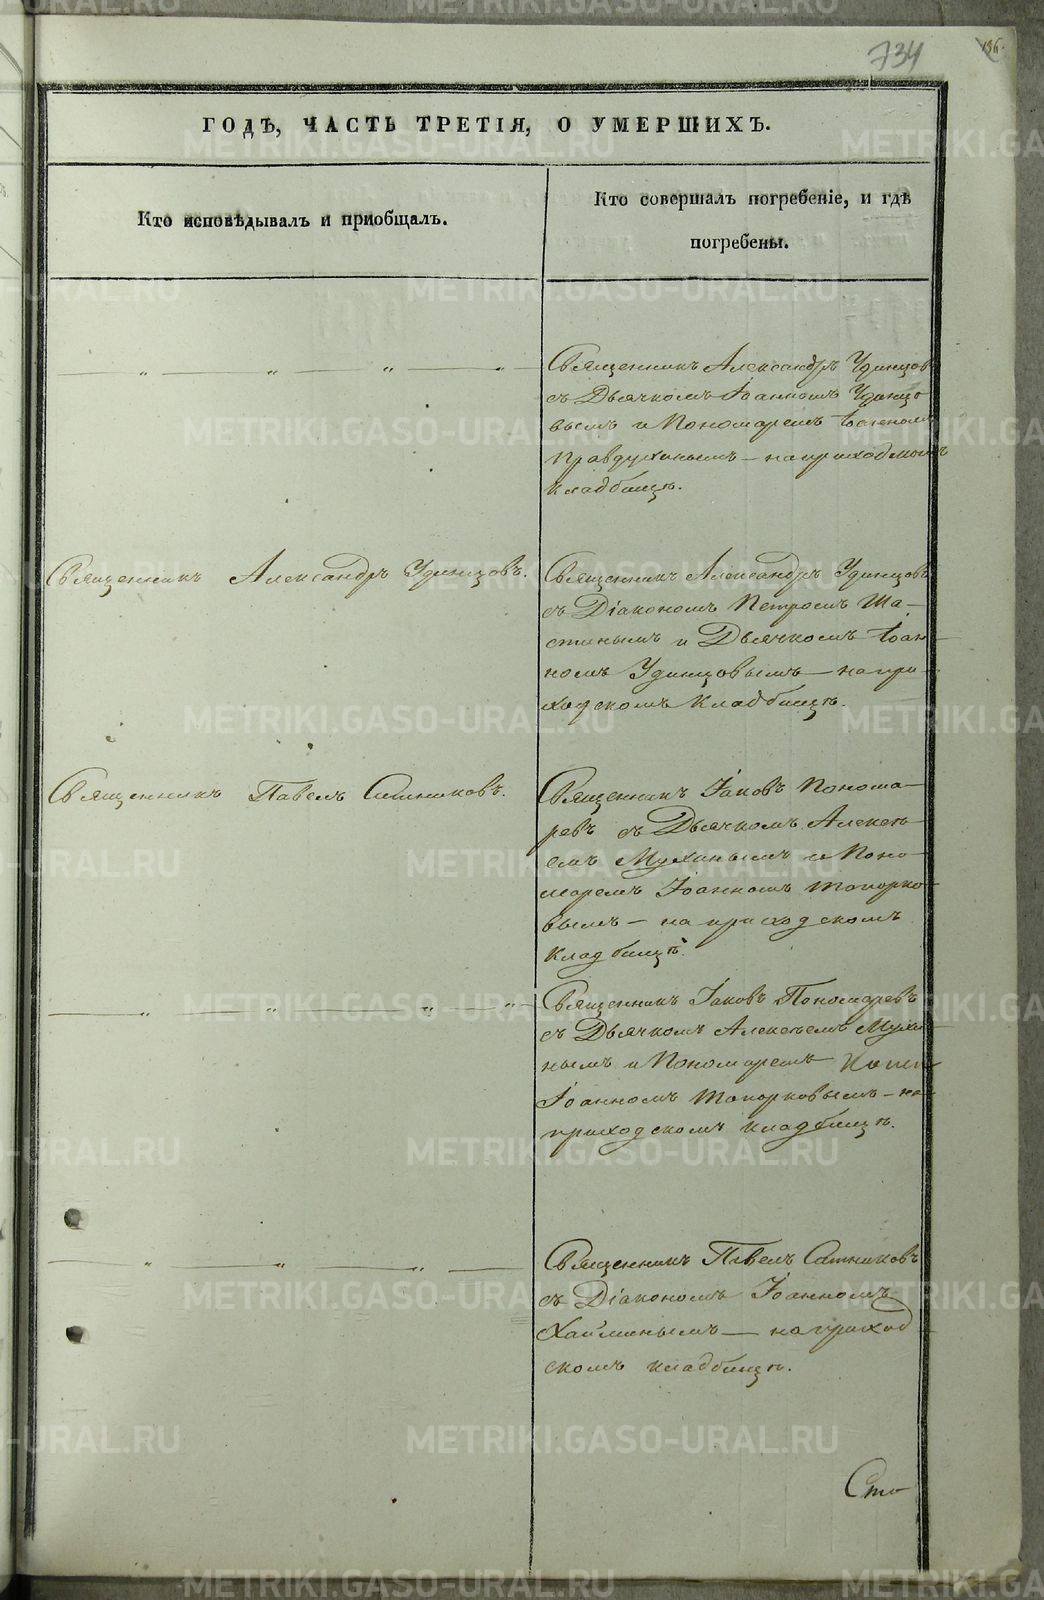 734
136
ГОДѢ, ЧАСТЬ ТРЕТІЯ, О УМЕРШИХЪ.
Кто исповѣдывалъ и приобщалъ.
Кто совершалъ погребеніе, и гдѣ
погребены.
Священникъ Александръ Удинцовъ
съ Дьячкомъ Іоанномъ Удинцо
вымъ и Пономаремъ Іоанномъ
Правдухинымъ – на приходскомъ
кладбищѣ.
Священникъ Александръ Удинцовъ.
Священникъ Александръ Удинцовъ
съ Діакономъ Петромъ Ша-
стинымъ и Дьячкомъ Іоан-
номъ Удинцовымъ – на при-
ходскомъ кладбищѣ.
Священникъ Павелъ Ситниковъ.
Священникъ Іаковъ Понома-
ревъ съ Дьячкомъ Алексѣ-
емъ Мухинымъ и Поно-
маремъ Іоанномъ Топорко-
вымъ – на приходскомъ
кладбищѣ.
Священникъ Іаковъ Пономаревъ
съ Дьячкомъ Алексѣемъ Мухи-
нымъ и Пономаремъ
Іоанномъ Топорковымъ – на
приходскомъ кладбищѣ.
Священникъ Павелъ Ситниковъ
съ Діакономъ Іоанномъ
Хайминымъ – на приход
скомъ кладбищѣ.
Сто
METRIKI.GASO-URAL.RU